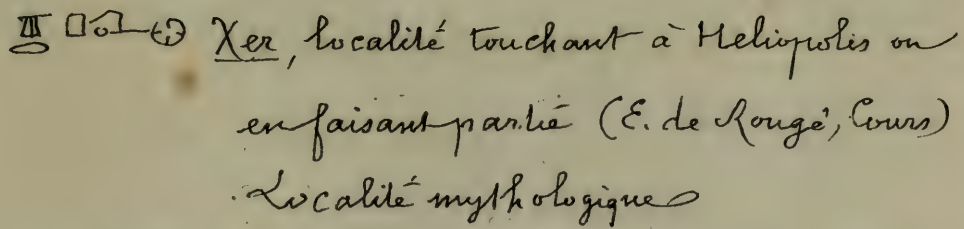 Xer, localité touchant à Heliopolis ou
en faisant partie (E. de Rougé, Cours)
Localité mythologique